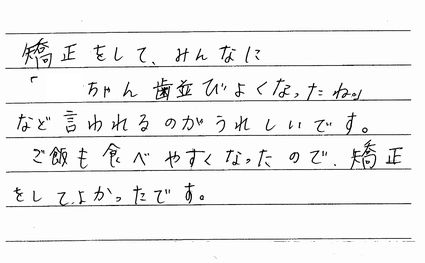 矯正をして、みんなに
「　　ちゃん歯並びよくなったね。」
など言われるのがうれしいです。
ご飯も食べやすくなったので、矯正
をしてよかったです。